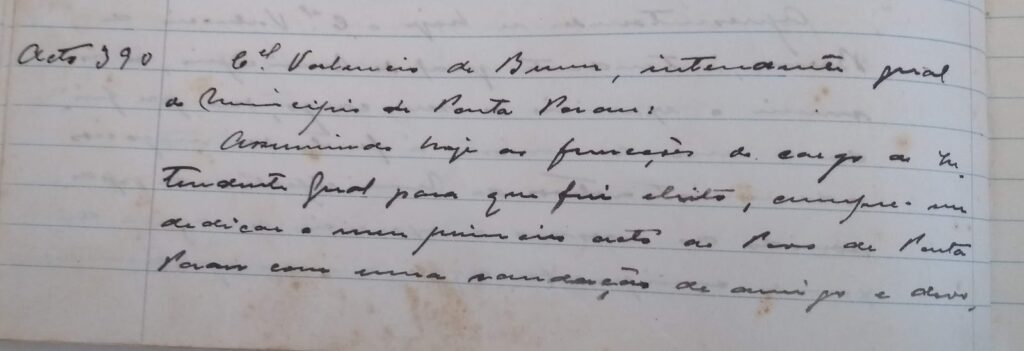 Acto 390 Cel Valencio de Brum, intendente geral
do Municipio de Ponta Poran:
Assumindo hoje as funcções do cargo de In-
tendente Geral para que fui eleito, cumpre-me
dedicar o meu primeiro acto ao Povo de Ponta
Poran com uma saudação de amigo e